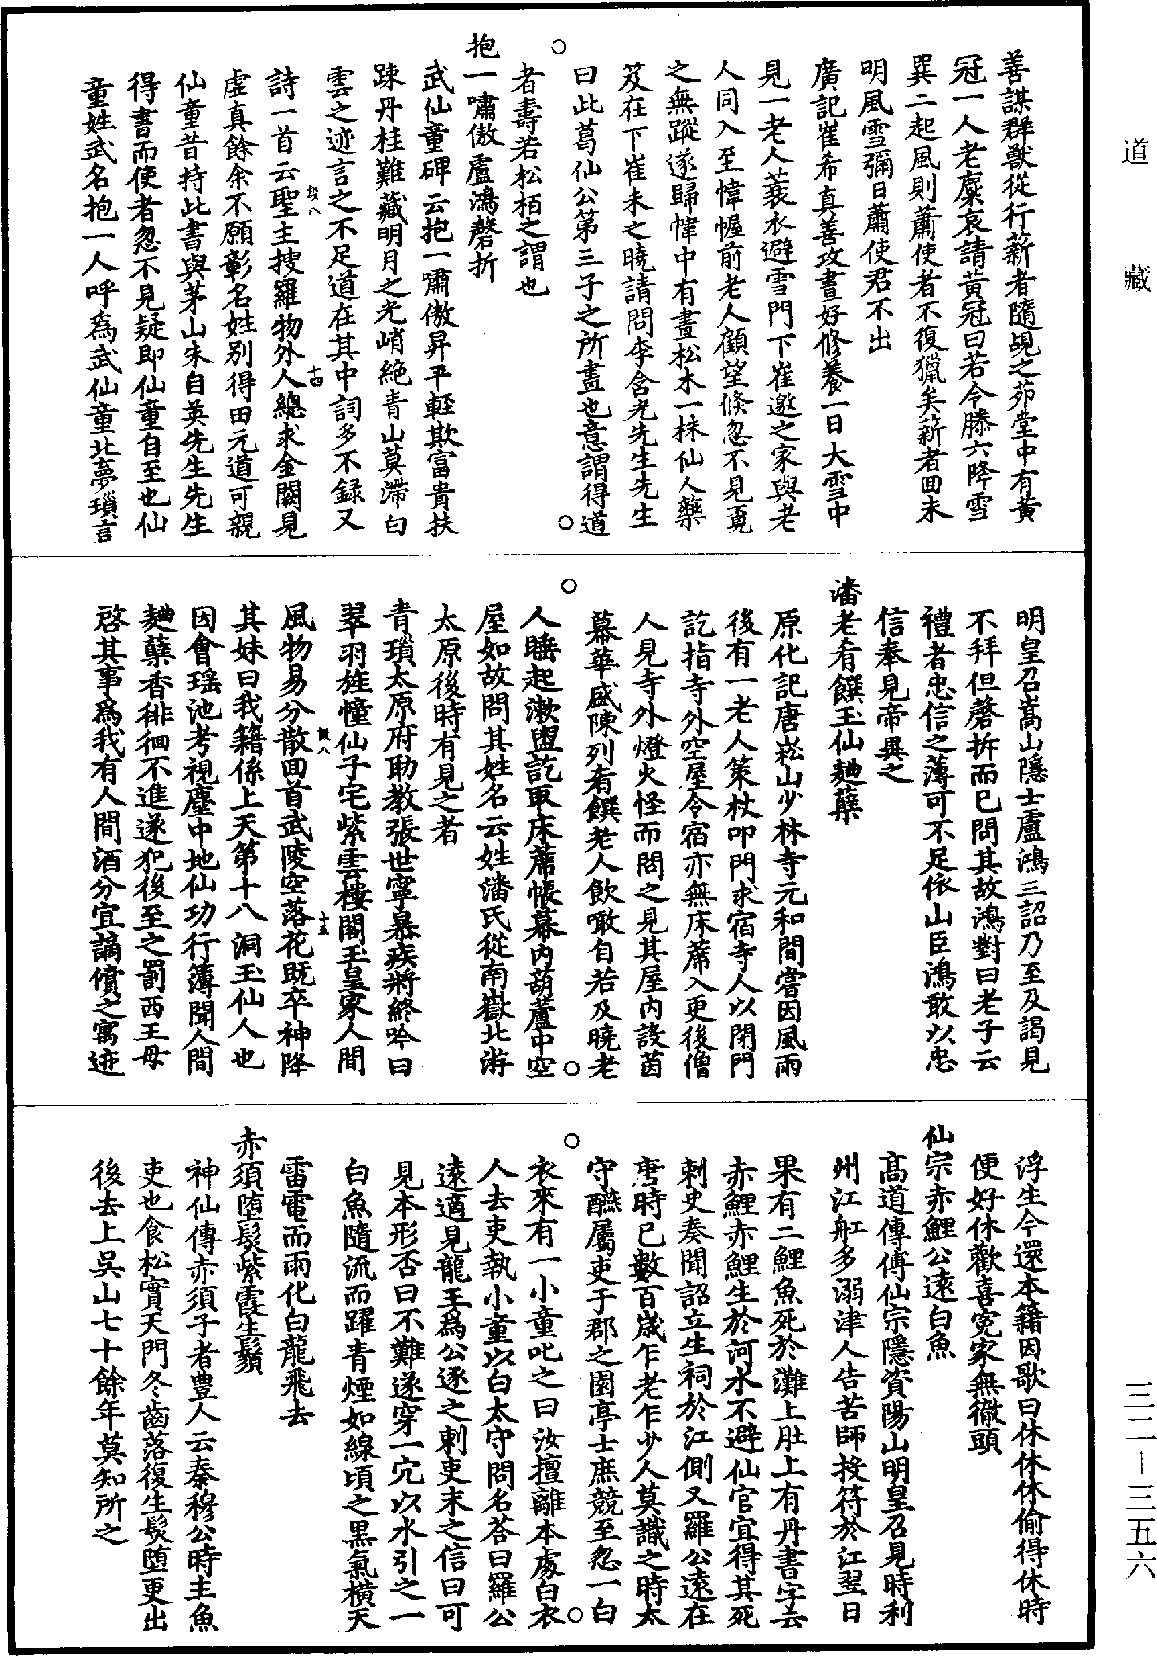 善謀群獸從行薪者隨覘之茆堂中有黃
冠一人老麋哀請黃冠曰若令滕六降雪
巽二起風則蕭使者不復獵矣薪者回未
明風雪彌日蕭使君不出
廣記崔希真善攻畫好修養一日大雪中
見一老人蓑衣避雪門下崔邀之家與老
人同入至幃幄前老人顧望倏忽不見覔
之無蹤遂歸幃中有畫松木一株仙人藥
芨在下崔未之曉請問李含光先生先生
曰此葛仙公第三子之所畫也意謂得道
者壽若松栢之謂也
抱一嘯傲盧鴻磬折
武仙童碑云抱一嘯傲昇平輕欺富貴扶
踈丹桂難藏明月之光峭絶青山莫滯白
雲之迹言之不足道在其中詞多不録又
詩一首云聖主搜羅物外人總求金闕見
虛真餘余不願彰名姓別得田元道可親
仙童昔持此書與茅山朱自英先生先生
得書而使者忽不見疑即仙童自至也仙
童姓武名抱一人呼爲武仙童北夢瑣言
明皇召嵩山隱士盧鴻三詔乃至及謁見
不拜但磬折而已問其故鴻對曰老子云
禮者忠信之薄可不足依山臣鴻敢以忠
信奉見帝異之
潘老肴饌玉仙麯蘗
原化記唐崧山少林寺元和間嘗因風雨
後有一老人策杖叩門求宿寺人以閉門
訖指寺外空屋令宿亦無床蓆入更後僧
人見寺外燈火怪而問之見其屋内設茵
幕華盛陳列肴饌老人飲噉自若及曉老
人睡起漱盥訖取床蓆帳幕内葫蘆中空
屋如故問其姓名云姓潘氏從南嶽北遊
太原後時有見之者
青瑣太原府助教張世寧暴疾將終吟曰
翠羽旌幢仙子宅紫雲樓閣玉皇家人間
風物易分散回首武陵空落花既卒神降
其妹曰我籍係上天第十八洞玉仙人也
因會瑶池考視塵中地仙功行簿聞人間
麯蘗香徘徊不進遂犯後至之罰西王母
啓其事爲我有人間酒分宜謫償之寓迹
浮生今還本籍因歌曰休休休偷得休時
便好休歡喜寃家無徹頭
仙宗赤鯉公遠白魚
高道傳傅仙宗隱資陽山明皇召見時利
州江舡多溺津人告苦師投符於江翌日
果有二鯉魚死於灘上肚上有丹書字云
赤鯉赤鯉生於河水不避仙官宜得其死
剌史奏聞詔立生祠於江側又羅公遠在
唐時已數百歲乍老乍少人莫識之時太
守醼屬吏于郡之園亭士庶競至忽一白
衣來有一小童叱之曰汝擅離本處白衣
人去吏執小童以白太守問名荅曰羅公
遠適見龍王爲公逐之剌史未之信曰可
見本形否曰不難遂穿一穴以水引之一
白魚隨流而躍青煙如線頃之黑氣橫天
雷電而雨化白龍飛去
赤須墮髮紫霞生鬚
神仙傳赤須子者豊人云秦穆公時主魚
吏也食松實天門冬齒落復生髮墮更出
後去上吳山七十餘年莫知所之
道藏
三二－三五六